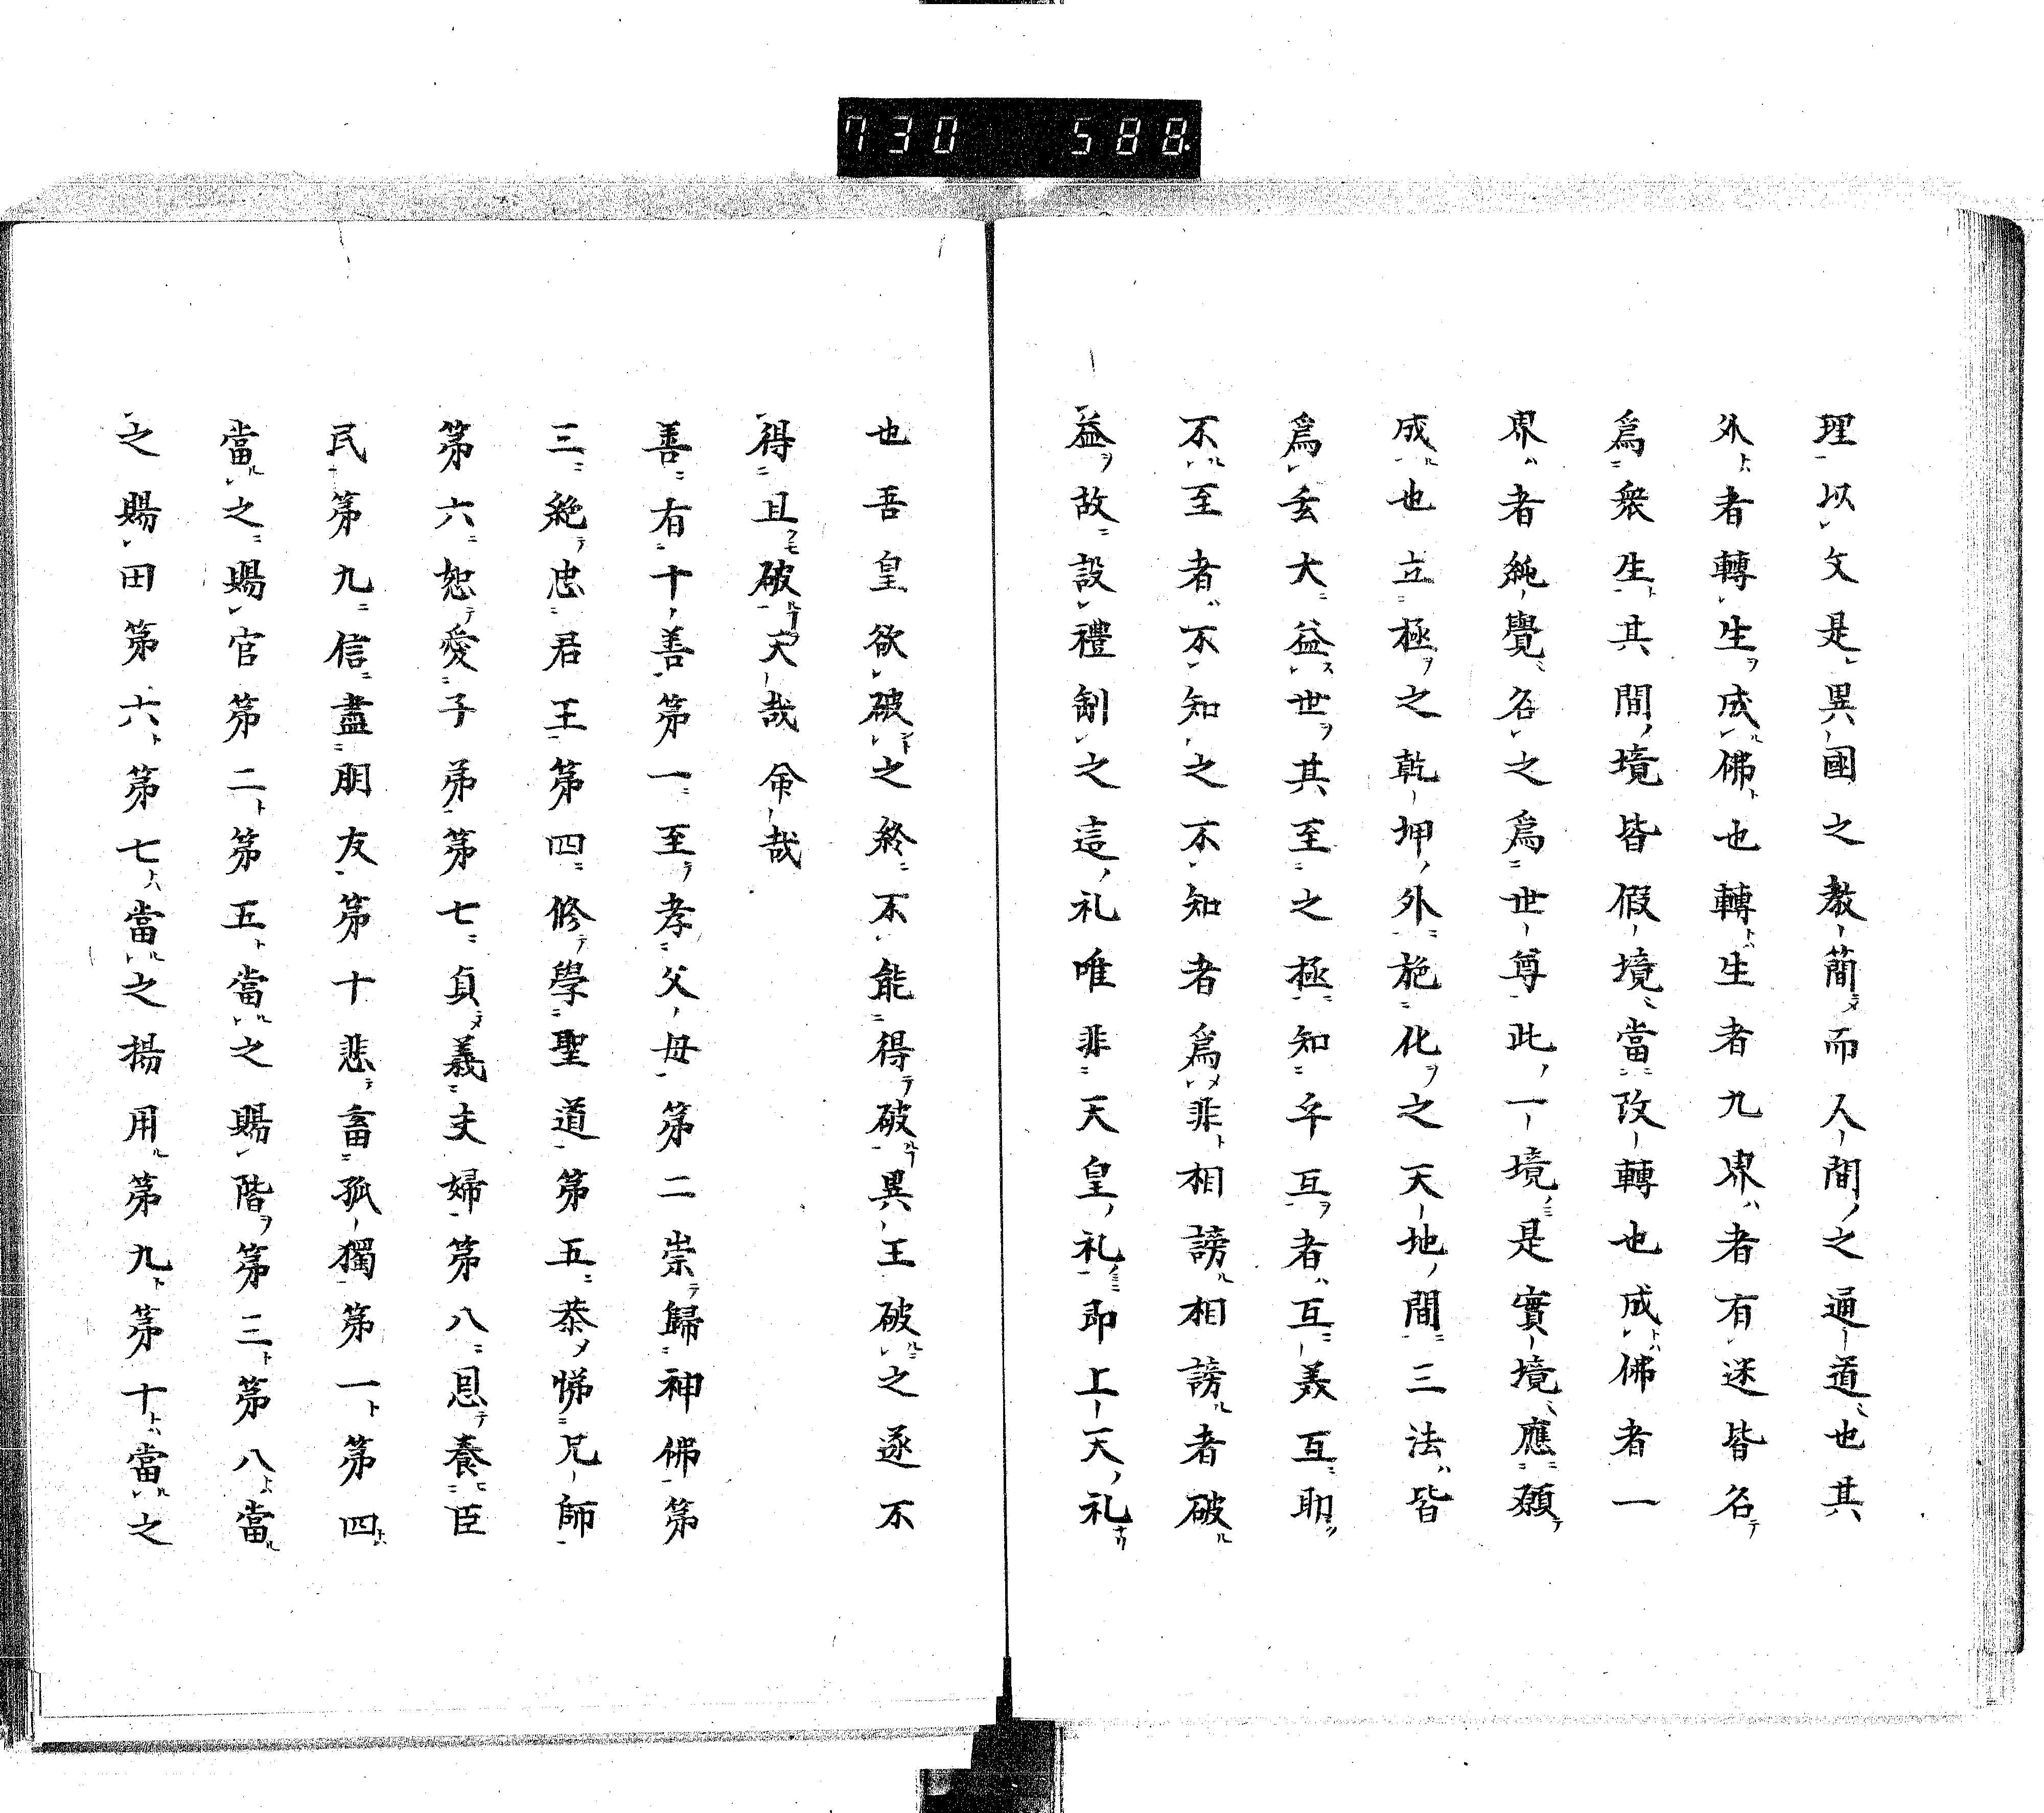 730 588
理以文是異國之教簡而人間之通道也其
外者轉生成佛也轉生者九界者有迷皆名
爲衆生其間境皆假境當改轉也成佛者一
界者純覺名之爲世尊此一境是實境應願
成也立極之乾坤外施化之天地間三法皆
爲玄大益世其至之極知乎互者互義互助
不至者不知之不知者爲非相謗相謗者破
益故設禮制之這礼唯非天皇礼即上天礼
也吾皇欲破之終不能得破異王破之逐不
得且破天哉命哉
善有十善第一至孝父母第二崇歸神佛第
三絶忠君王第四修學聖道第五恭悌兄師
第六恕愛子弟第七貞義夫婦第八恩養臣
民第九信盡朋友第十悲畜孤獨第一第四
當之賜官第二第五當之賜階第三第八當
之賜田第六第七當之揚用第九第十當之